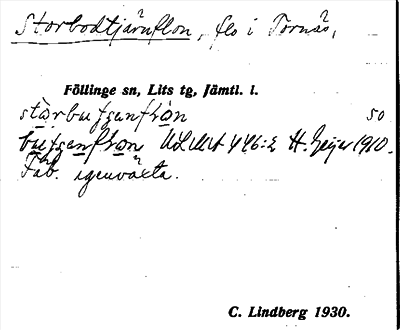 Storbodtjärnflon, flo i Tornäs,
Föllinge sn, Lits tg, Jämtl. l.
50
ULMA 446:2 H. Geijer 1910.
Fäb. igenväxta.
C. Lindberg 1930.